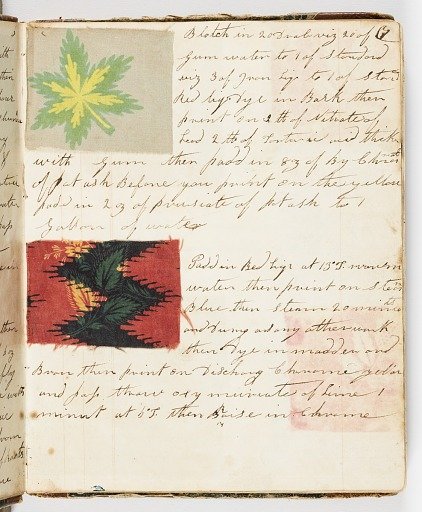 Blotch in 20 Drab viz 20 of G
Gum water to 1 of Standard
viz 3 of Iron liqr to 1 of Stand
Red liqr Dye in Bark then
print on 2 lb of Nitrate of
Lead 2 lb of Tartaric acid thick
with Gum then padd in 8 oz of By Chromt
of potash Before you print on the yellow
padd in 2 oz of prusiate of pot ash to 1
Gallon of water
Padd in Red liqr at 15 T. warm
water then print on Stm
Blue then Steam 20 minits
and Dung as any other work
then Dye in madder and
Barm then print on Discharg Chrome yellow
and pass thro oxymuriate of lime 1
minut at 8 T then Raise in Chrome